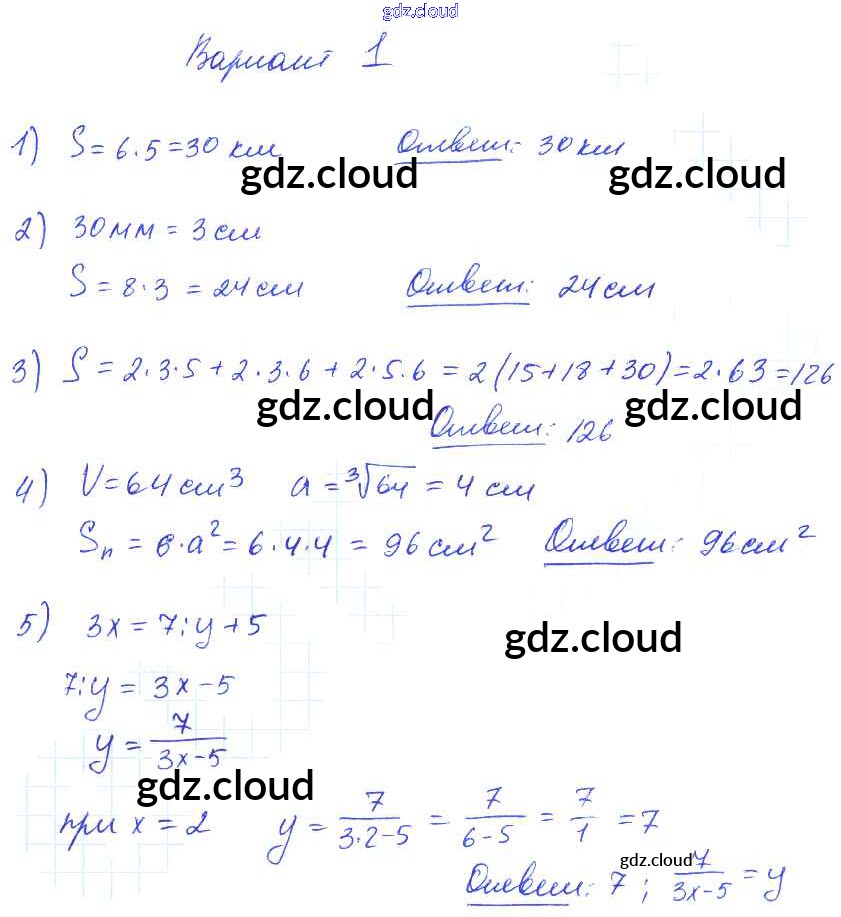 gdz.cloud
Вариант 1
1) S = 6·5 = 30 км Ответ: 30 км
gdz.cloud gdz.cloud
2) 30 мм = 3 см
S = 8·3 = 24 см Ответ: 24 см
3) S = 2·3·5 + 2·3·6 + 2·5·6 = 2(15+18+30) = 2·63 = 126
gdz.cloud gdz.cloud
Ответ: 126
4) V = 64 см³ a = ³√64 = 4 см
Sп = 6·a² = 6·4·4 = 96 см² Ответ: 96 см²
5) 3x = 7:y + 5
gdz.cloud
7:y = 3x - 5
y = 7/(3x-5)
gdz.cloud
при x = 2 y = 7/(3·2-5) = 7/(6-5) = 7/1 = 7
gdz.cloud
Ответ: 7; 7/(3x-5) = y